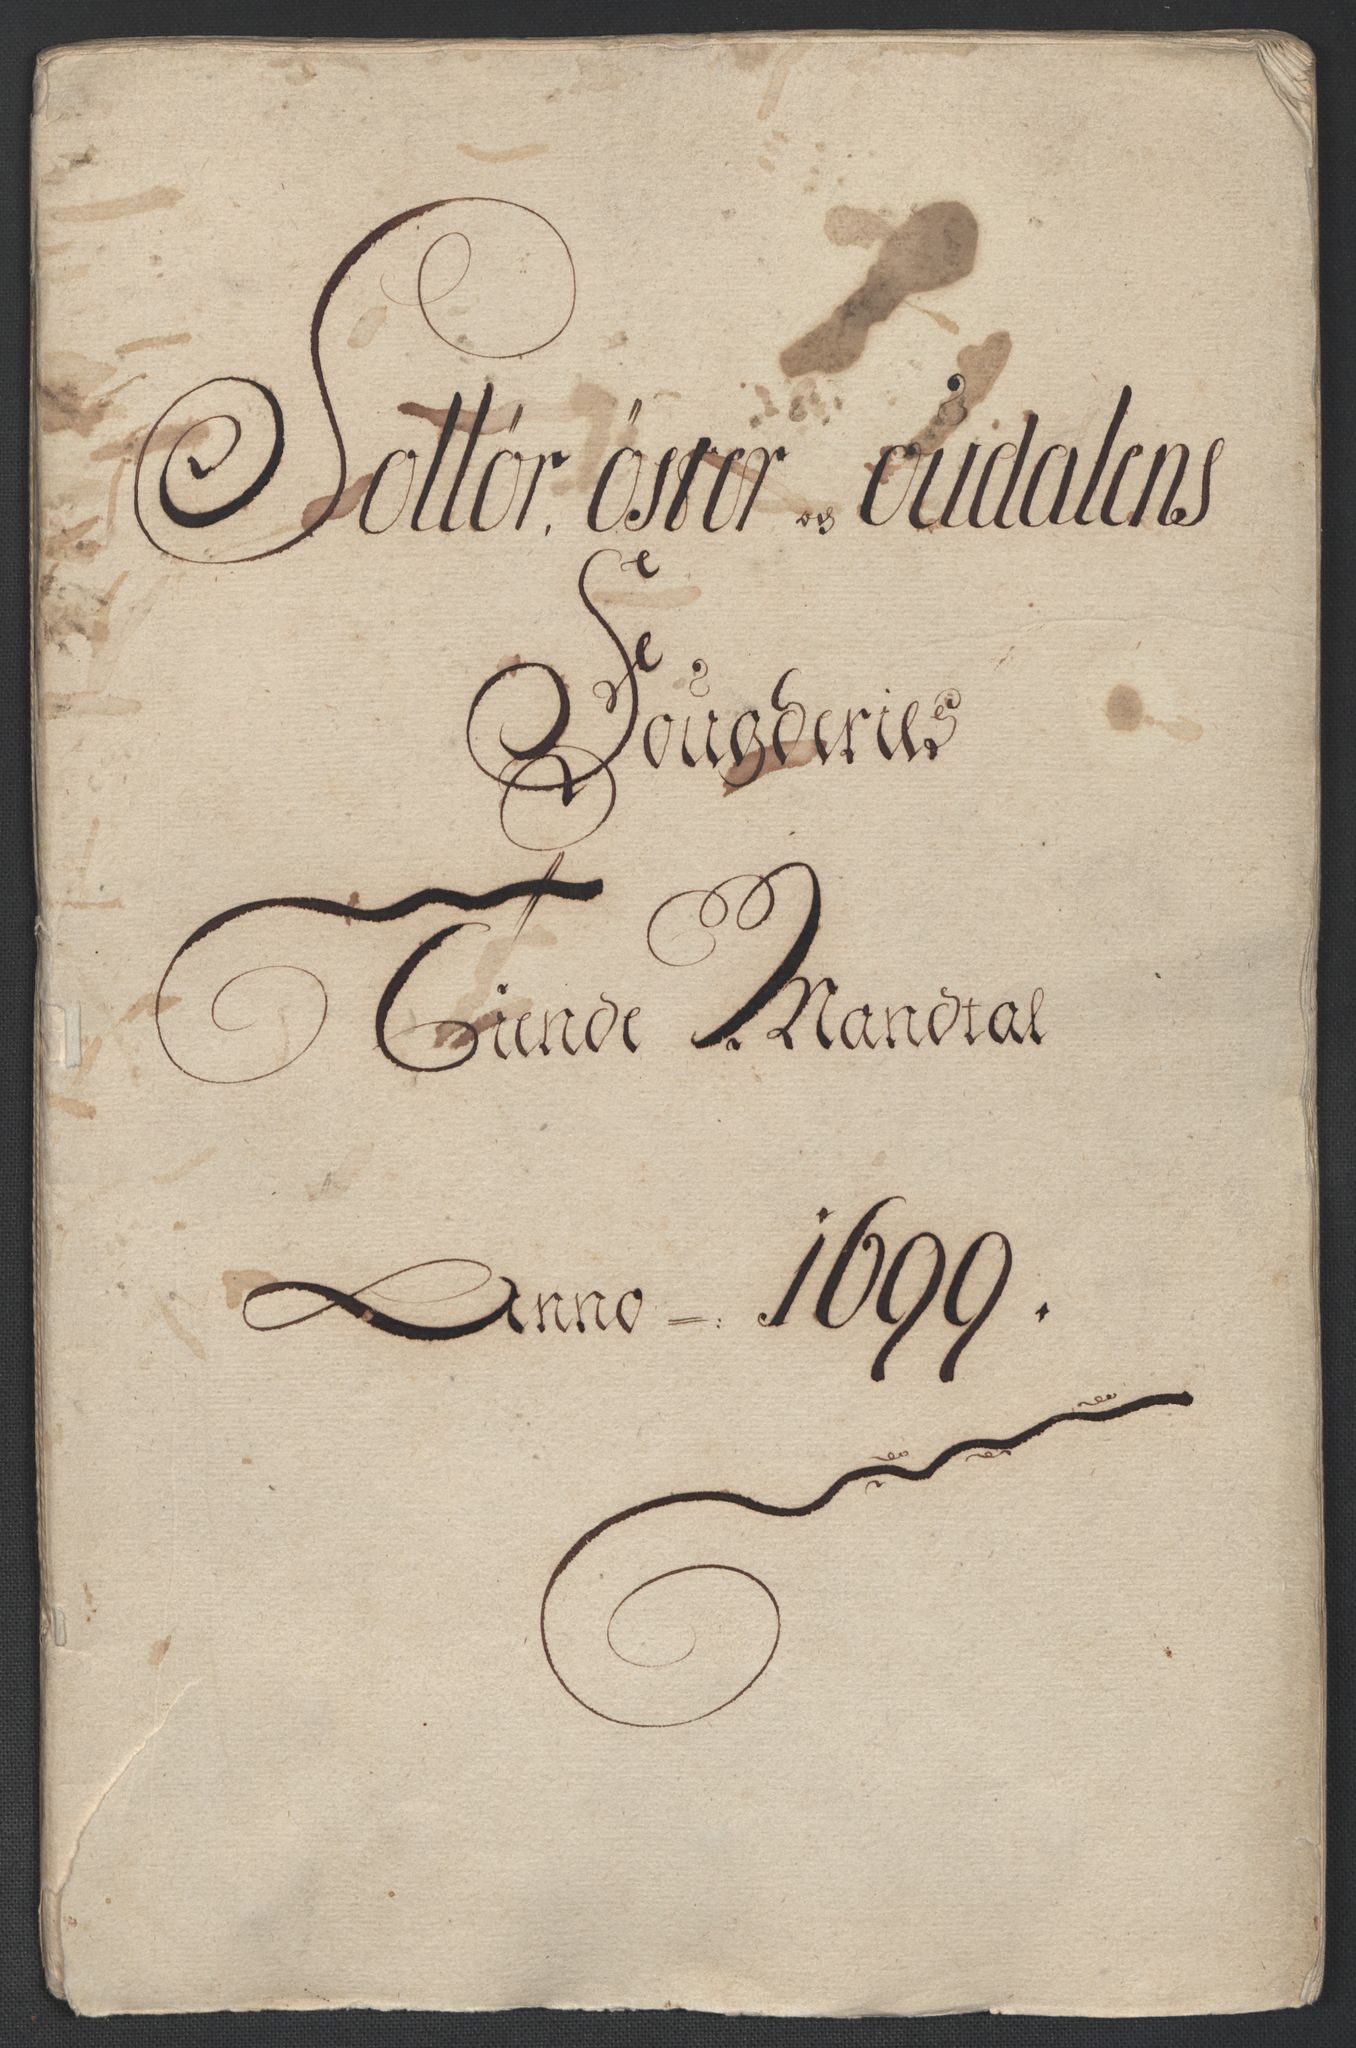 Sollør, öster og oudalens
Fougderies
Tiende Mandtal
Anno 1699.